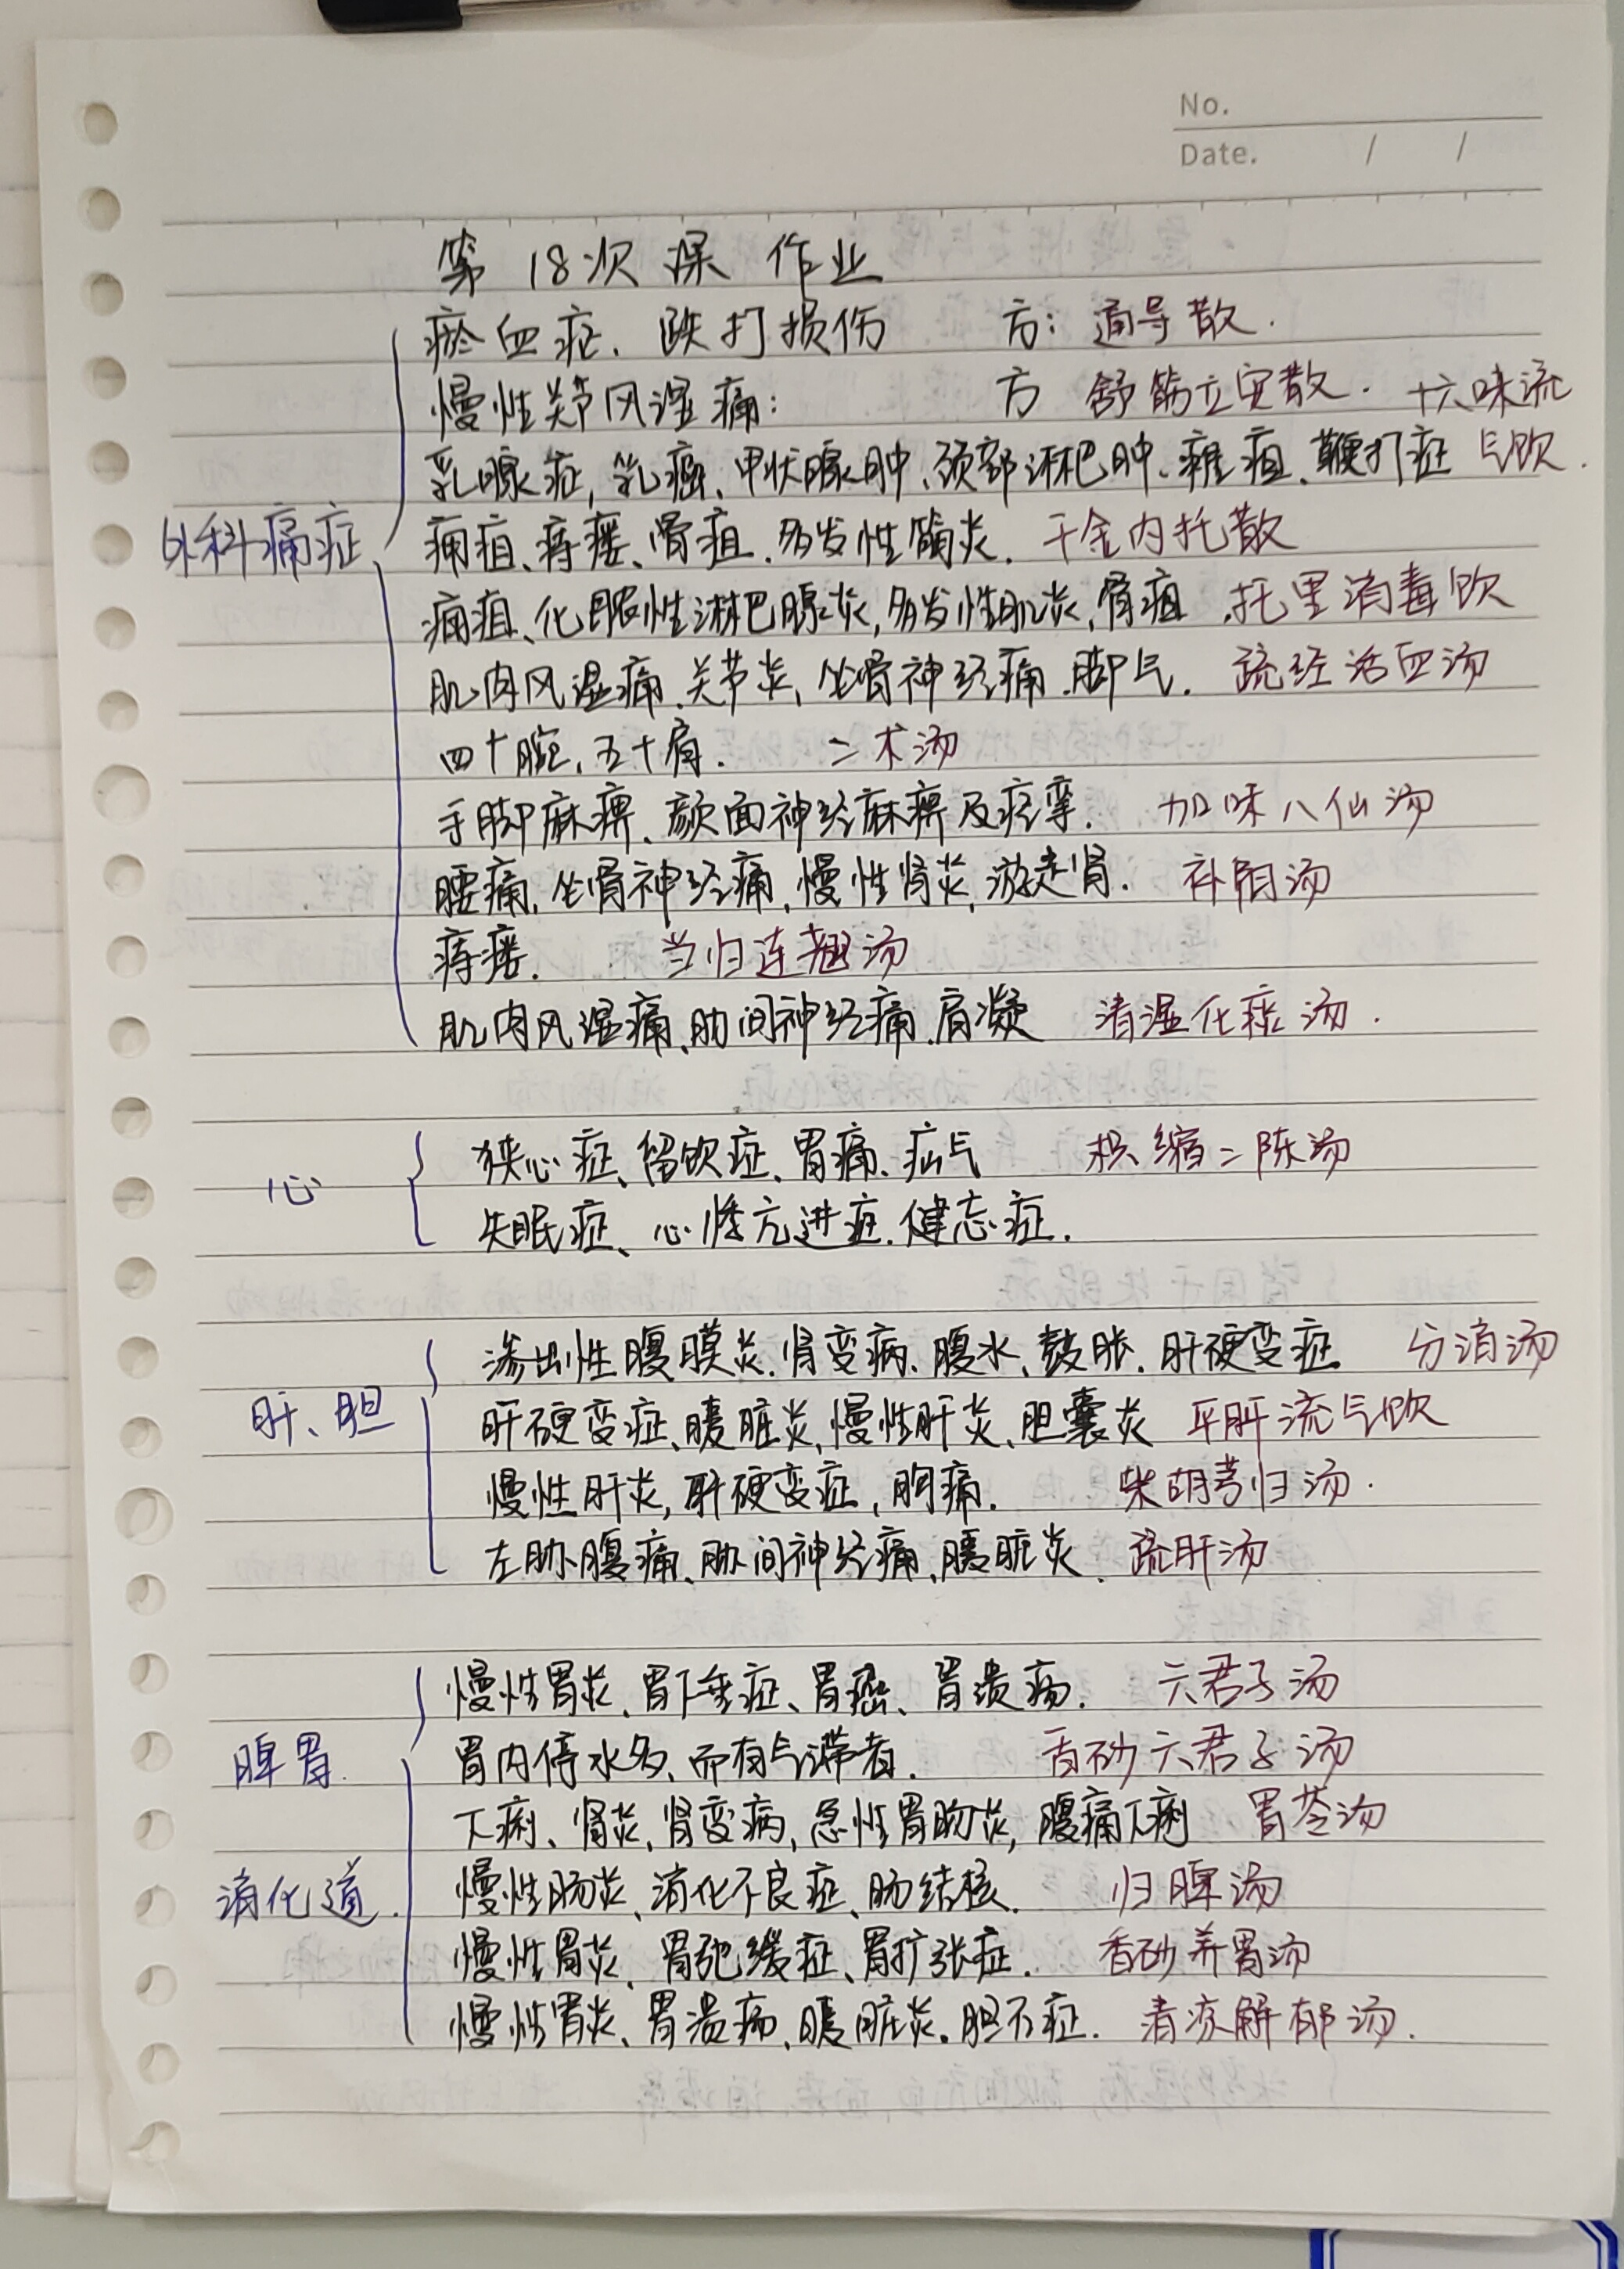 No.
Date. / /
第18次课 作业
瘀血症、跌打损伤 方：通导散.
慢性关节风湿痛： 方 舒筋立安散. 十六味流
乳腺症,乳癌、甲状腺肿、颈部淋巴肿、瘰疽、鞭打症 气饮.
外科痛症
痈疽、痔瘘、骨疽.多发性筋炎. 千金内托散
痈疽、化脓性淋巴腺炎,多发性肌炎,骨疽.托里消毒饮
肌肉风湿痛.关节炎,坐骨神经痛.脚气. 疏经活血汤
四十腕,五十肩. 二术汤
手脚麻痹、颜面神经麻痹及痉挛. 加味八仙汤
腰痛,坐骨神经痛,慢性肾炎,游走肾. 补阴汤
痔瘘. 当归连翘汤
肌肉风湿痛、肋间神经痛.肩凝 清湿化痰汤.
心
狭心症、留饮症、胃痛.疝气 枳缩二陈汤
失眠症、心悸亢进症.健忘症.
肝、胆
渗出性腹膜炎.肾变病.腹水、鼓胀.肝硬变症 分消汤
肝硬变症、胰脏炎,慢性肝炎、胆囊炎 平肝流气饮
慢性肝炎,肝硬变症,胸痛. 柴胡芎归汤.
左胁腹痛、肋间神经痛、胰脏炎. 疏肝汤
脾胃.
消化道.
慢性胃炎、胃下垂症、胃癌、胃溃疡. 六君子汤
胃内停水多、而有气滞者. 香砂六君子汤
下痢、肾炎,肾变病,急性胃肠炎,腹痛下痢 胃苓汤
慢性肠炎、消化不良症、肠结核. 归脾汤
慢性胃炎、胃弛缓症、胃扩张症. 香砂养胃汤
慢性胃炎、胃溃疡、胰脏炎。胆石症. 清凉解郁汤.